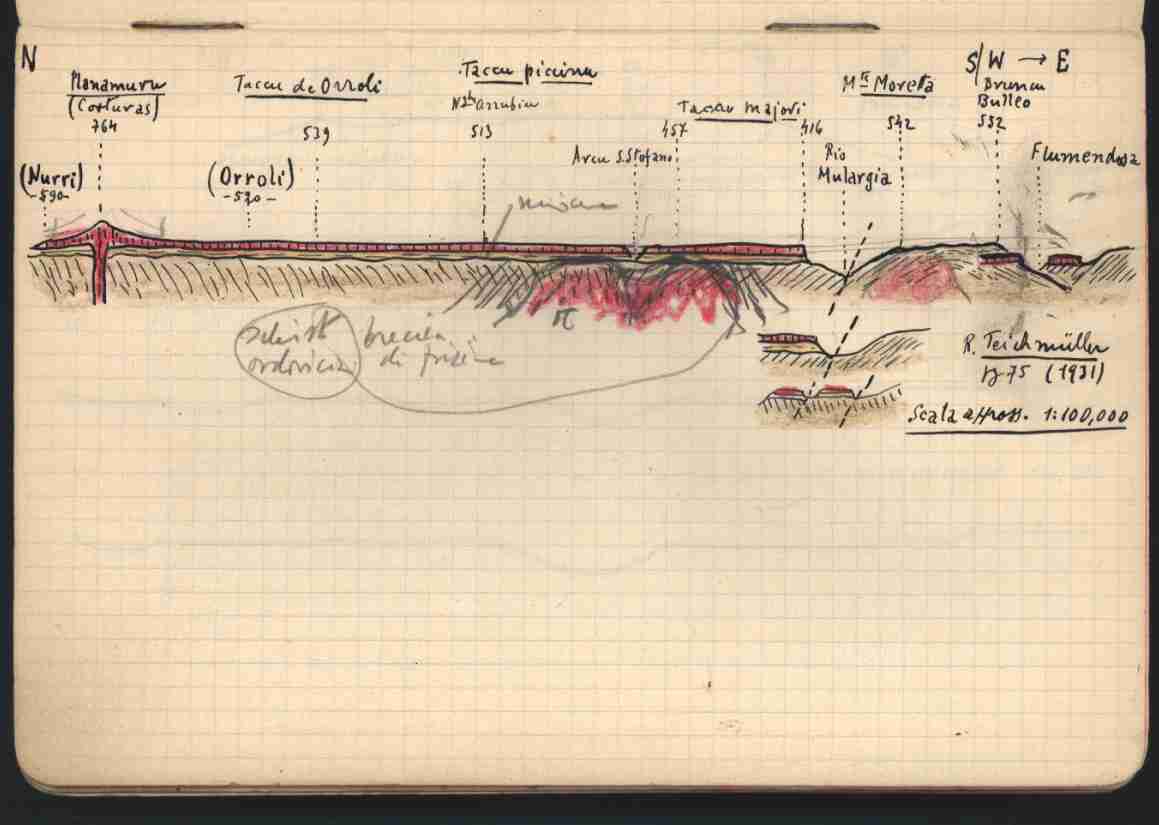 N
Manamuru
(Corturas)
764
(Nurri)
-590-
Taccu de Orroli
539
(Orroli)
-520-
Taccu piccinu
Arrubiu
513
Arcu S. Stefano
Taccu majori
457
416
Rio
Mulargia
Mte Moretta
542
S/W → E
Bruncu
Bulleo
552
Flumendosa
π
schisti
ordovicia
breccia
di frizione
R. Teichmüller
p 75 (1931)
Scala appross. 1:100,000